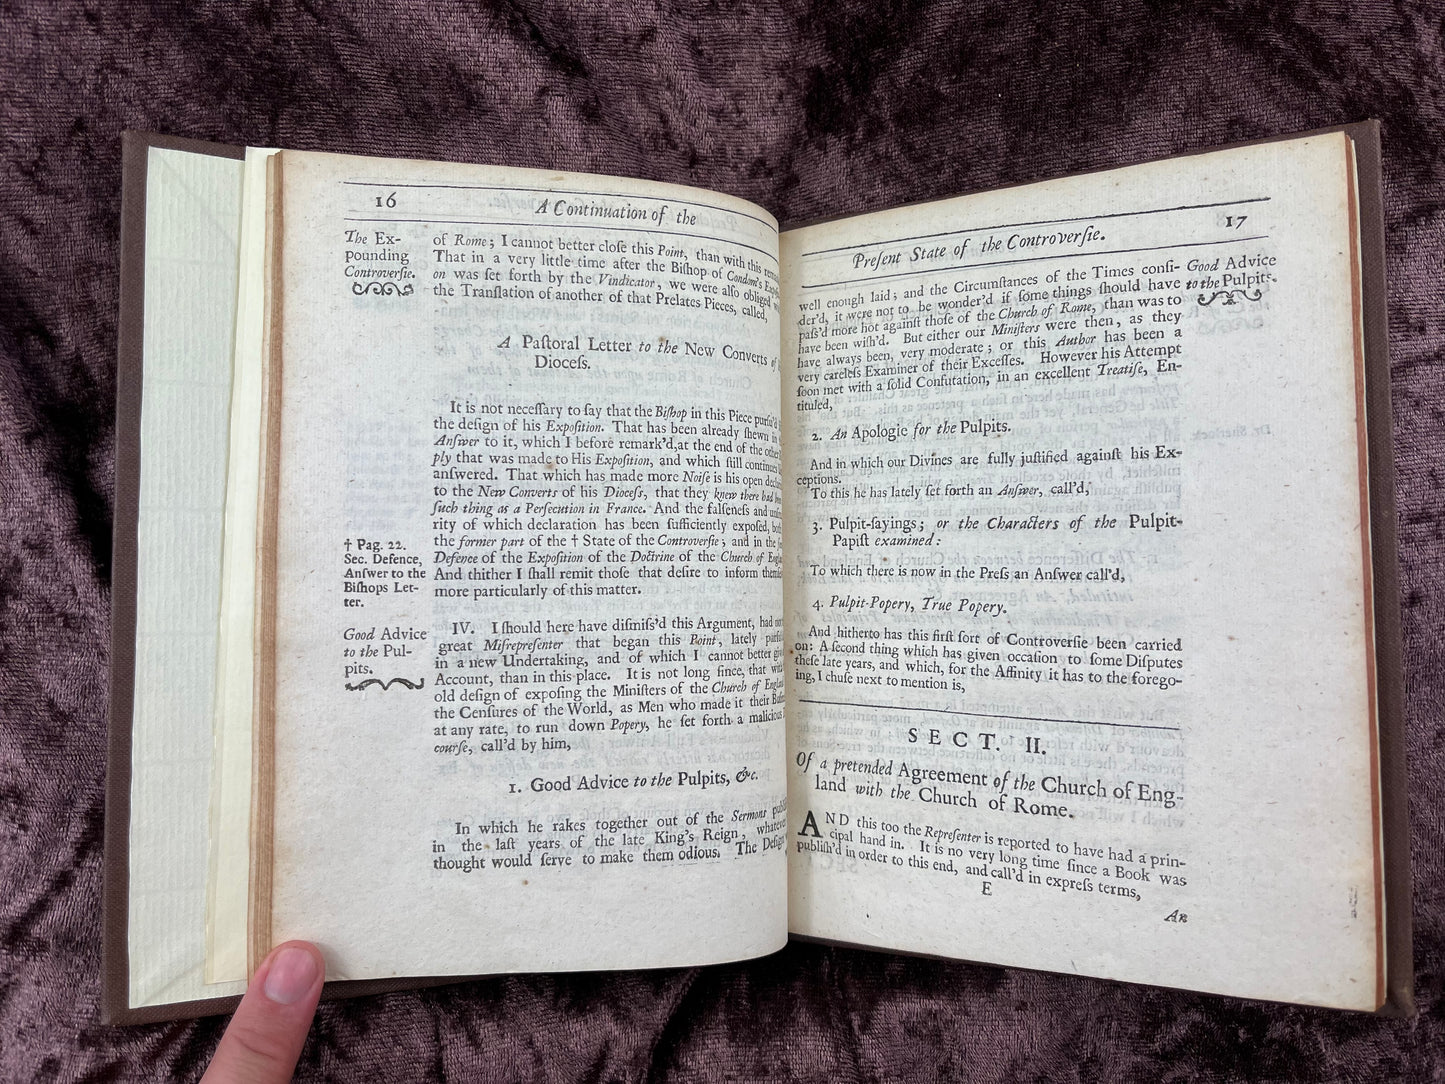 16
A Continuation of the
The Ex-
pounding
Controverſie.
of Rome; I cannot better cloſe this Point, than with this
That in a very little time after the Biſhop of Condom's
on was ſet forth by the Vindicator, we were alſo obliged
the Tranſlation of another of that Prelates Pieces, called,
A Paſtoral Letter to the New Converts of
Dioceſs.
It is not neceſſary to ſay that the Biſhop in this Piece purſu'd
the deſign of his Expoſition. That has been already ſhewn in
Anſwer to it, which I before remark'd,at the end of the other
ply that was made to His Expoſition, and which ſtill continues
anſwered. That which has made more Noiſe is his open
to the New Converts of his Dioceſs, that they knew there had
ſuch thing as a Perſecution in France. And the falſeneſs and
rity of which declaration has been ſufficiently expoſed,
the former part of the † State of the Controverſie; and in the
Defence of the Expoſition of the Doctrine of the Church of
And thither I ſhall remit thoſe that deſire to inform
more particularly of this matter.
† Pag. 22.
Sec. Defence,
Anſwer to the
Biſhops Let-
ter.
Good Advice
to the Pul-
pits.
IV. I ſhould here have diſmiſs'd this Argument, had
great Miſrepreſenter that began this Point, lately
in a new Undertaking, and of which I cannot better
Account, than in this place. It is not long ſince, that
old deſign of expoſing the Miniſters of the Church of
the Cenſures of the World, as Men who made it their
at any rate, to run down Popery, he ſet forth a malicious
courſe, call'd by him,
1. Good Advice to the Pulpits, &c.
In which he rakes together out of the Sermons
in the laſt years of the late King's Reign, whatever
thought would ſerve to make them odious. The Deſign
Preſent State of the Controverſie.
17
Good Advice
to the Pulpits.
well enough laid; and the Circumſtances of the Times conſi-
der'd, it were not to be wonder'd if ſome things ſhould have
paſs'd more hot againſt thoſe of the Church of Rome, than was to
have been wiſh'd. But either our Miniſters were then, as they
have always been, very moderate; or this Author has been a
very careleſs Examiner of their Exceſſes. However his Attempt
ſoon met with a ſolid Confutation, in an excellent Treatiſe, En-
tituled,
2. An Apologie for the Pulpits.
And in which our Divines are fully juſtified againſt his Ex-
ceptions.
To this he has lately ſet forth an Anſwer, call'd,
3. Pulpit-ſayings; or the Characters of the Pulpit-
Papiſt examined:
To which there is now in the Preſs an Anſwer call'd,
4. Pulpit-Popery, True Popery.
And hitherto has this firſt ſort of Controverſie been carried
on: A ſecond thing which has given occaſion to ſome Diſputes
theſe late years, and which, for the Affinity it has to the forego-
ing, I chuſe next to mention is,
SECT. II.
Of a pretended Agreement of the Church of Eng-
land with the Church of Rome.
AND this too the Repreſenter is reported to have had a prin-
cipal hand in. It is no very long time ſince a Book was
publiſh'd in order to this end, and call'd in expreſs terms,
E
An